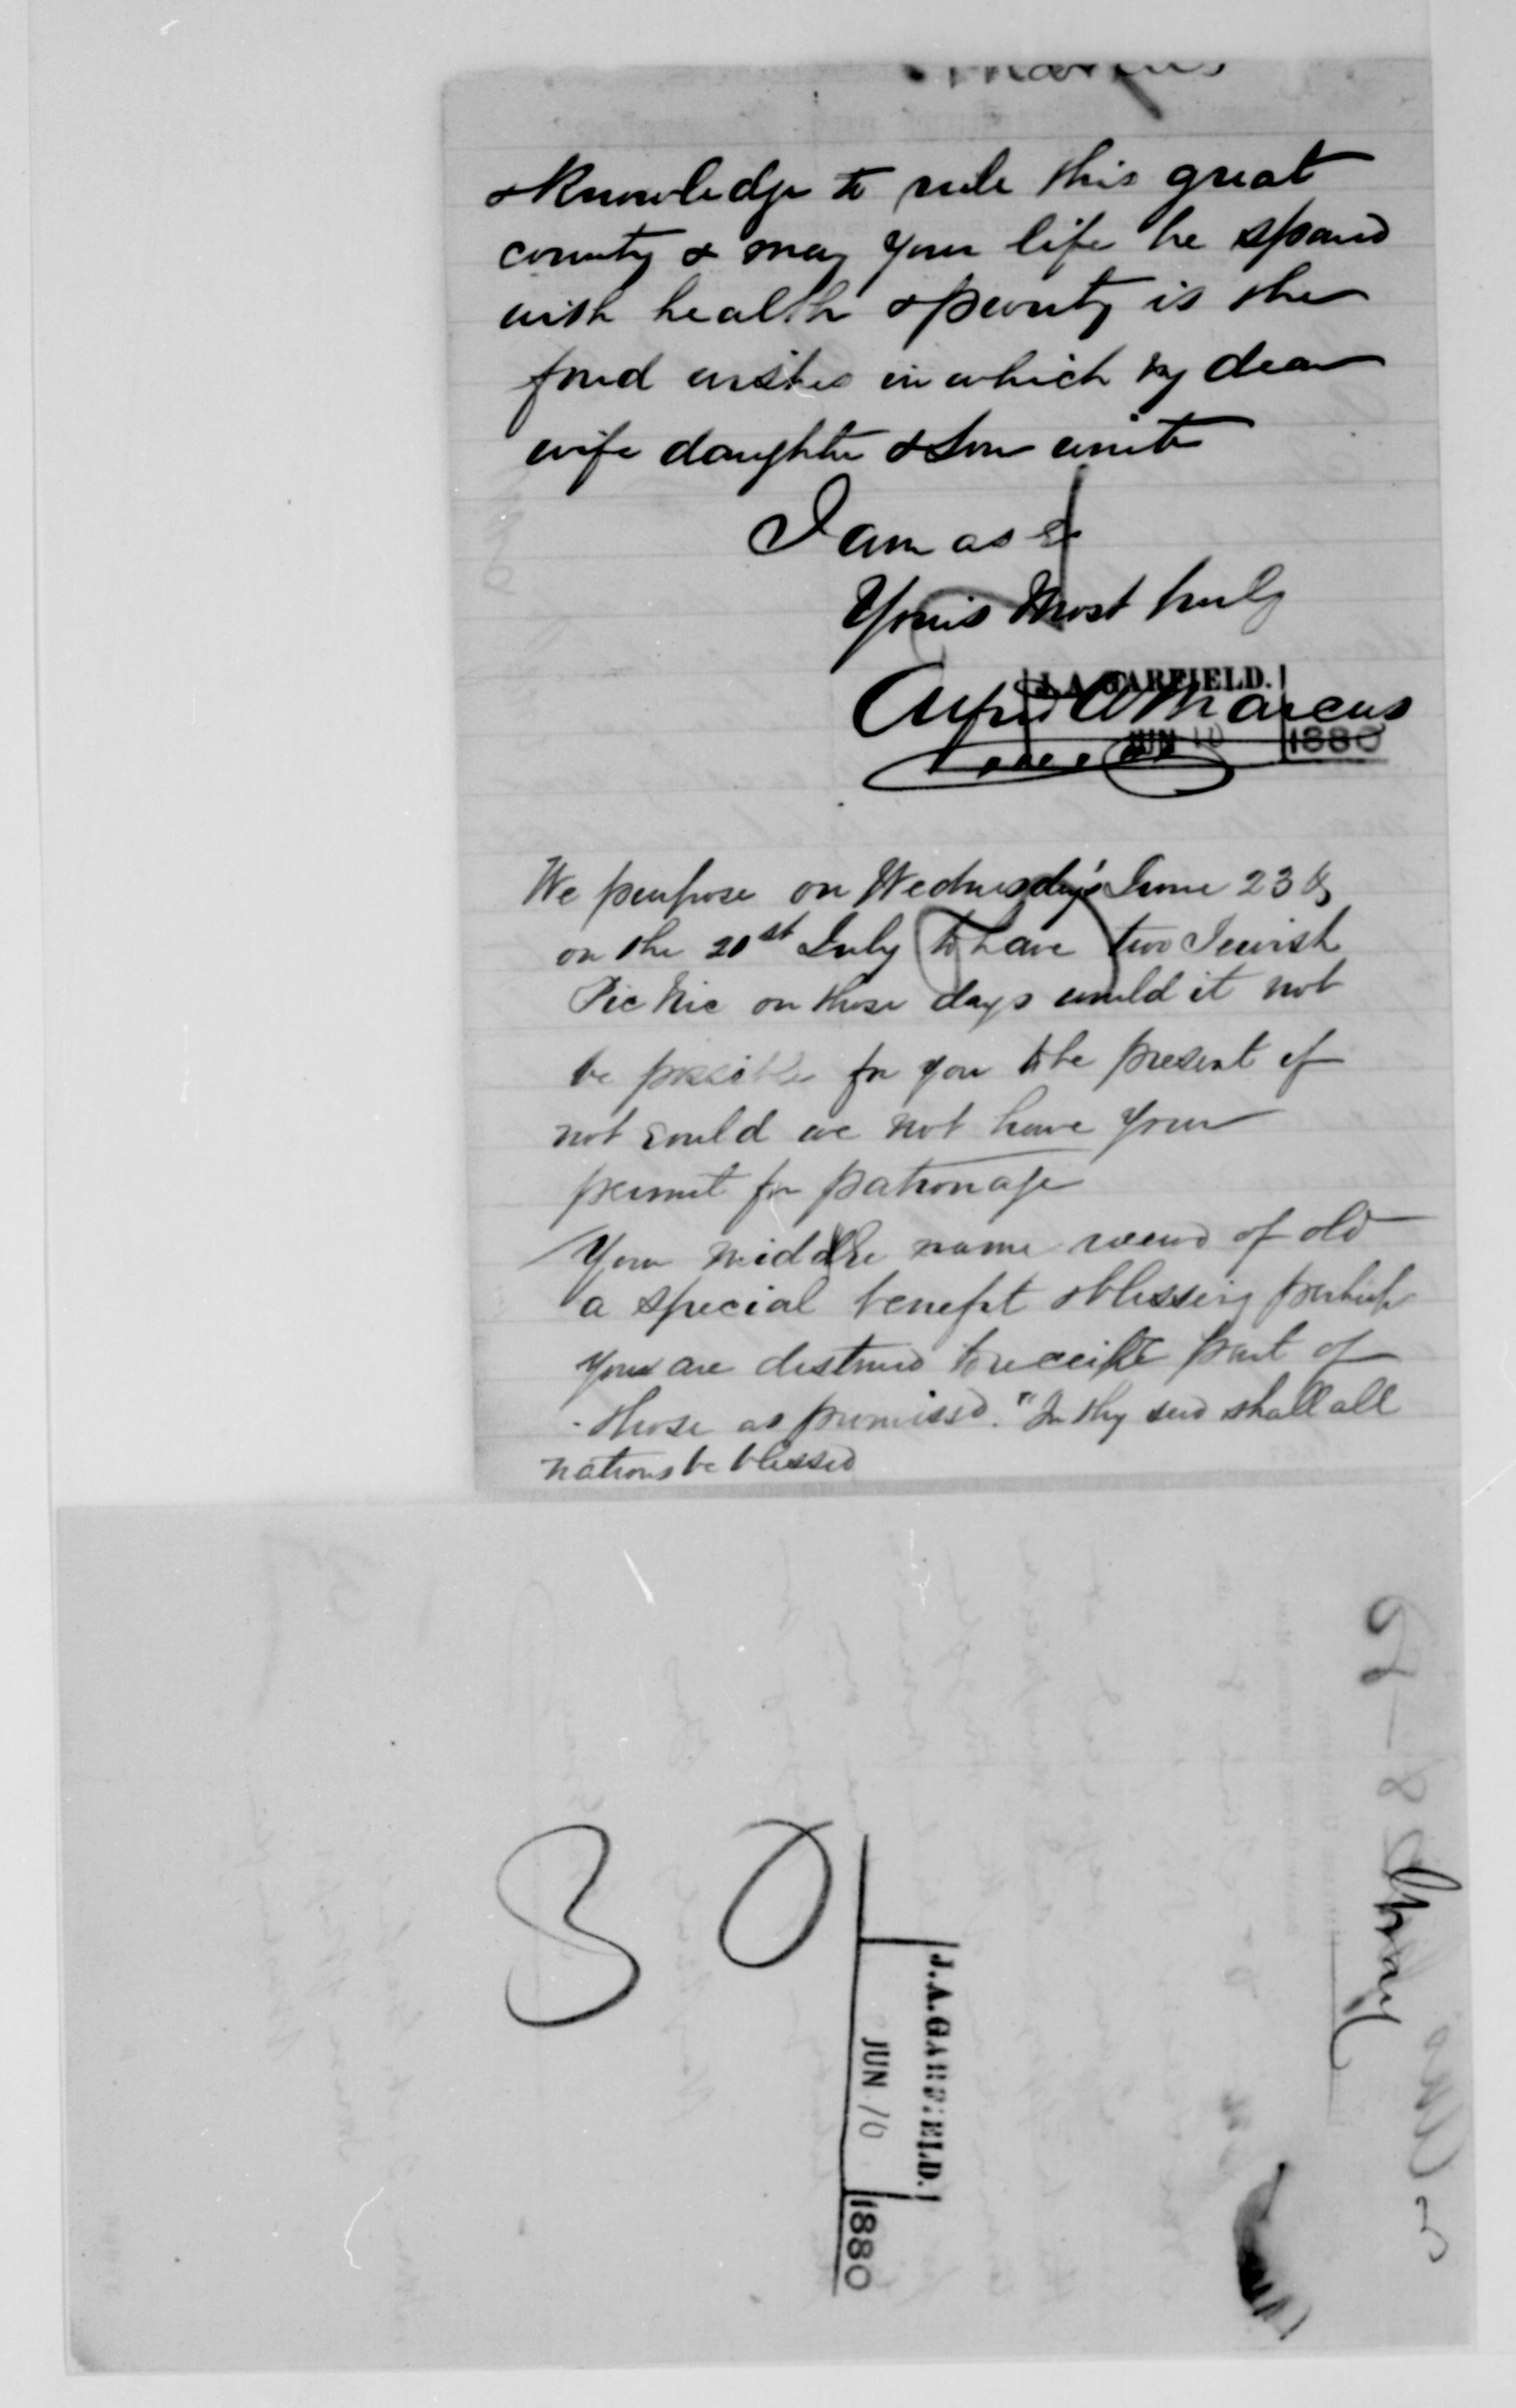 Marcus
& Knowledge to rule this great
county & may your life be spared
with health & purity is the
fond wishes in which my dear
wife daughter & Son unite
I am as
Yours Most truly
Alfred A Marcus
J. A. GARFIELD.
JUN 10 1880
We purpose on Wednesday's June 23 &
on the 21st July to have two Jewish
Pic Nic on those days would it not
be possible for you to be present if
not could we not have your
permit for patronage
Your middle name received of old
a special benefit & blessing for which
you are destined to receive part of
those as promised. "In thy seed shall all
nations be blessed
J. A. GARFIELD.
JUN 10 1880